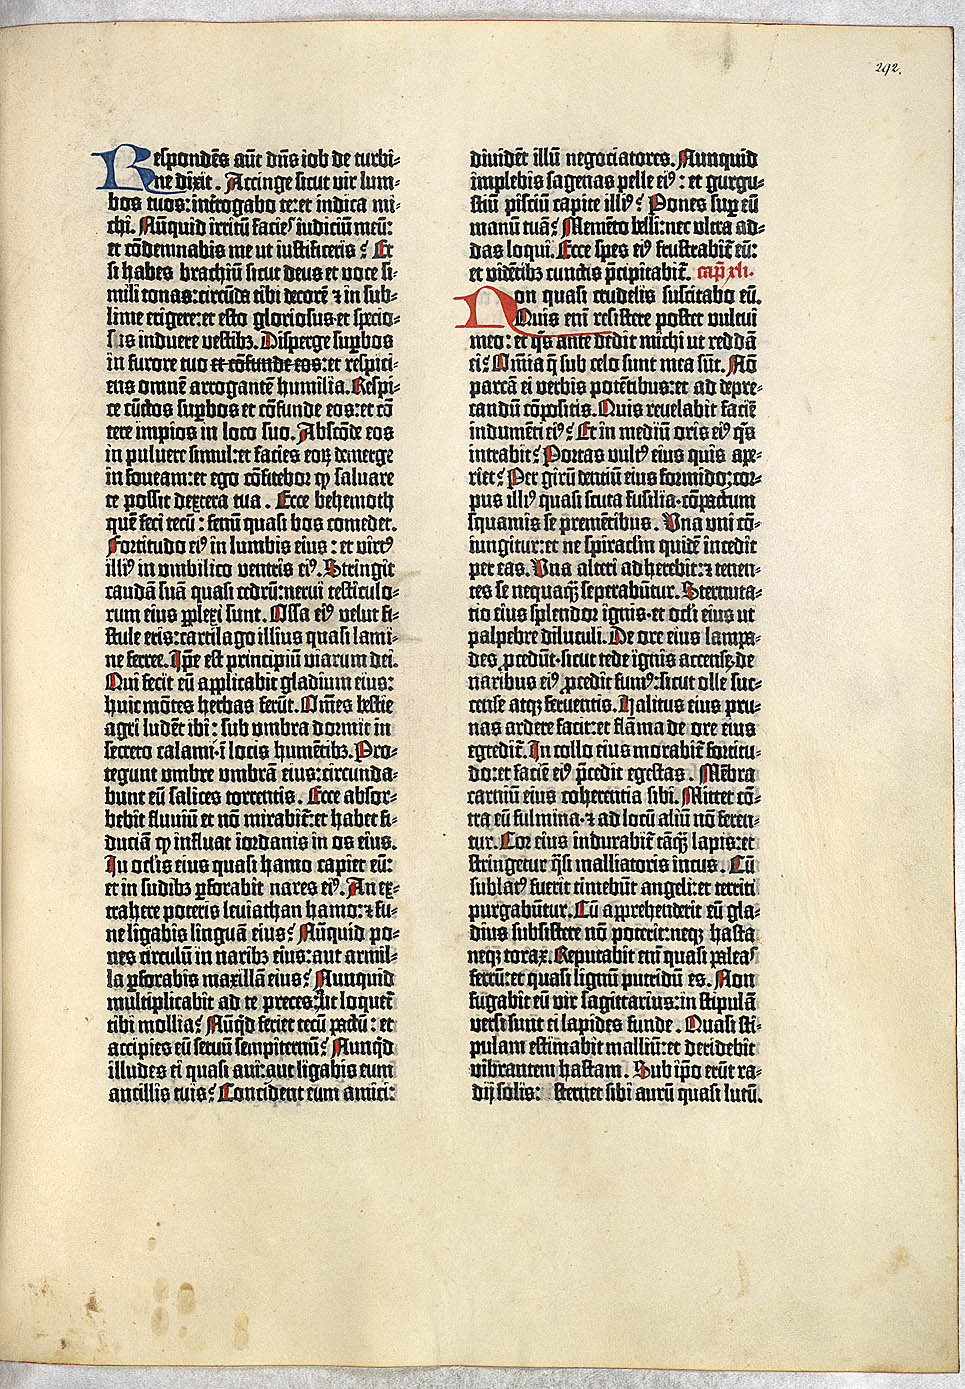 292.
Respondēs aūt dn̄s iob de turbi-
ne dixit. Accinge sicut vir lum-
bos tuos: int̄rogabo te: et indica mi-
chi. Nūquid irritū facieꝰ iudiciū meū:
et cōdemnabis me ut iustificeris? Et
si habes brachiū sicut deus et voce si-
mili tonas: circūda tibi decorē ⁊ in sub-
lime erigere: et esto gloriosus et specio-
sus induere vestibꝫ. Disperge suꝑbos
in furore tuo et cōfunde eos: et respici-
ens omnē arrogantē humilia. Respi-
ce cūctos suꝑbos et cōfunde eos: et cō
tere impios in loco suo. Abscōde eos
in pulvere simul: et facies eoꝝ demerge
in foveam: et ego cōfitebor ꝙ salvare
te possit dextera tua. Ecce behemoth
quē feci tecū: fenū quasi bos comedet.
Fortitudo eiꝰ in lumbis eius: et virtꝰ
illiꝰ in umbilico ventris eiꝰ. Stringit
caudā suā quasi cedrū: nervi testiculo-
rum eius ꝑplexi sunt. Ossa eiꝰ velut fi-
stule eris: cartilago illius quasi lami-
ne ferree. Ip̄e est principiū viarum dei.
Qui fecit eū applicabit gladium eius:
huic mōtes herbas ferūt. Om̄es bestie
agri ludēt ibi: sub umbra dormit in
secreto calami· ī locis humētibꝫ. Pro-
tegunt umbre umbrā eius: circunda-
bunt eū salices torrentis. Ecce absor-
bebit fluviū et nō mirabit᷑: et habet fi-
duciā ꝙ influat iordanis in os eius.
In oclīs eius quasi hamo capiet eū:
et in sudibꝫ ꝑforabit nares eiꝰ. An ex-
trahere poteris leviathan hamo: ⁊ fu-
ne ligabis linguā eius? Nūquid po-
nes circulū in naribꝫ eius: aut armil-
la ꝑforabis maxillā eius? Nunquid
multiplicabit ad te preces: Aut loquet᷑
tibi mollia? Nūq̄d feriet tecū pactū: et
accipies eū servū sempiternū? Nunq̄d
illudes ei quasi avi: aut ligabis eum
ancillis tuis? Concident eum amici:
dividēt illū negociatores. Nunquid
implebis sagenas pelle eiꝰ: et gurgu-
stiū pisciū capite illiꝰ? Pones suꝑ eū
manū tuā? Memēto belli: nec ultra ad-
das loqui. Ecce spes eiꝰ frustrabit᷑ eū:
et vidētibꝫ cunctis p̄cipitabit᷑. cap̄ xli.
Non quasi crudelis suscitabo eū.
Quis em̄ resistere potest vultui
meo: et q̄s ante dedit michi ut reddā
ei? Om̄ia q̄ sub celo sunt mea sūt. Nō
parcā ei verbis potētibus: et ad depre-
candū cōpositis. Quis revelabit faciē
indumēti eiꝰ? Et in mediū oris eiꝰ q̄s
intrabit? Portas vultꝰ eius quis ape-
riet? Per girū dentiū eius formido: cor-
pus illiꝰ quasi scuta fusilia· cōpactum
squamis se premētibus. Una uni cō-
iungitur: et ne spiraclm̄ quidē incedit
per eas. Una alteri adherebit: ⁊ tenen-
tes se nequaq̄ꝫ seperabūtur. Sternuta-
tio eius splendor ignis· et oclī eius ut
palpebre diluculi. De ore eius lampa-
des ꝓcedūt· sicut tede ignis accense: de
naribus eiꝰ ꝓcedit fumꝰ: sicut olle suc-
cense atqꝫ ferventis. Halitus eius pru-
nas ardere facit: et flāma de ore eius
egredit᷑. In collo eius morabit᷑ fortitu-
do: et faciē eiꝰ p̄cedit egestas. Mēbra
carniū eius coherentia sibi. Mittet cō-
tra eū fulmina· ⁊ ad locū aliū nō feren-
tur. Cor eius indurabit᷑ tāq̄ꝫ lapis: et
stringetur q̄si malliatoris incus. Cū
sublatꝰ fuerit timebūt angeli: et territi
purgabūtur. Cū apprehenderit eū gla-
dius subsistere nō poterit: neqꝫ hasta
neqꝫ torax. Reputabit em̄ quasi paleaꝰ
ferrū: et quasi lignū putridū es. Non
fugabit eū vir sagittarius: in stipulā
versi sunt ei lapides funde. Quasi sti-
pulam estimabit malliū: et deridebit
vibrantem hastam. Sub ip̄o erūt ra-
dij solis: sternet sibi aurū quasi lutū.